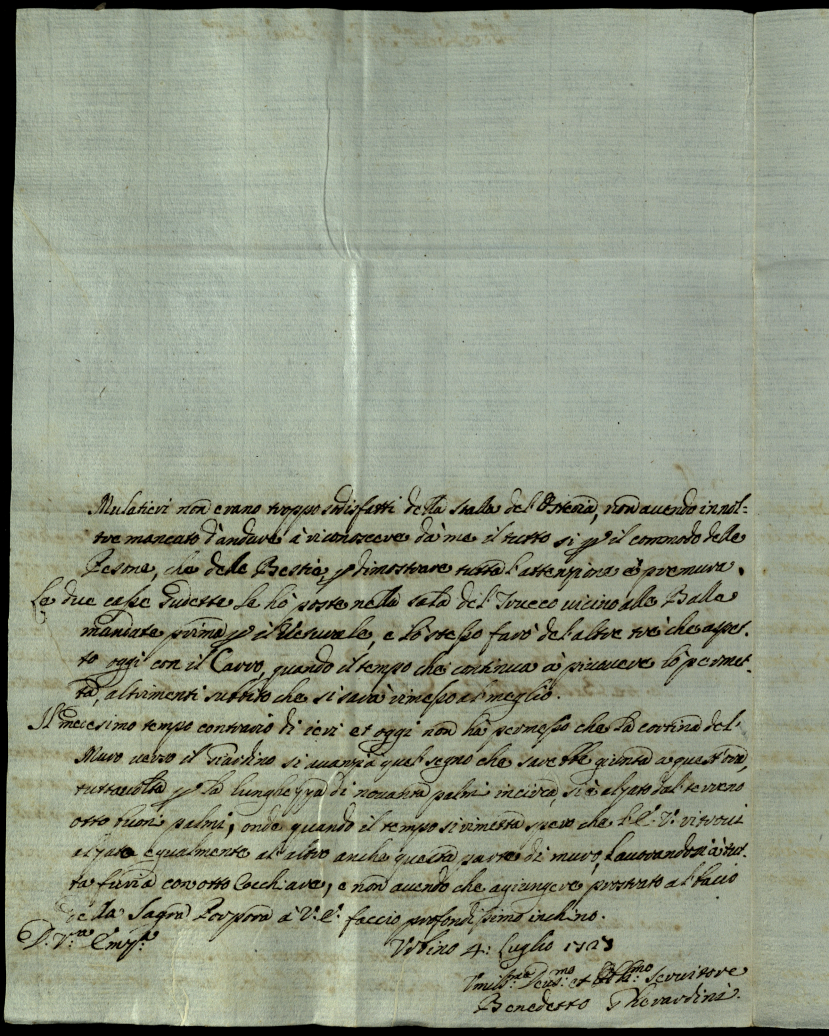 Mulatieri non erano troppo sodisfatti della stalla del Osteria, non avendo innol=
tre mancato d'andare à riconoscere dà me il tutto si p il commodo delle
Persone, che delle Bestie p dimostrare tutta l'attenzione e premura.
Le due casse sudette le hò poste nella sala del Trucco vicino alle Balle
mandate prima p il, e lo stesso farò del'altre trè che aspet-
to oggi con il Carro, quando il tempo che continua à piovere lo permet-
ta, altrimenti subbito che si sarà rimesso al meglio.
Il medesimo tempo contrario di ieri et oggi non hà permesso che la cortina del
Muro verso il Giardino si avanzi à quel segno che sarebbe giunta a quest'ora,
tuttavolta p la lunghezza di novanta palmi incirca, si è alzato dal terreno
otto buoni palmi, onde quando il tempo si rimetta spero che V. ritrovi
alzata egualmente al'altro anche questa parte di muro, lavorandosi à tut-
ta furia con otto Cocchiare, e non avendo che agiungere prostrato al bacio
della Sagra Porpora à V. E. faccio profondissimo inchino.
D. V.ra Em.za
Urbino 4: Luglio 1723
Umil.mo Dev.mo et Obb.mo Servitore
Benedetto Gherardini